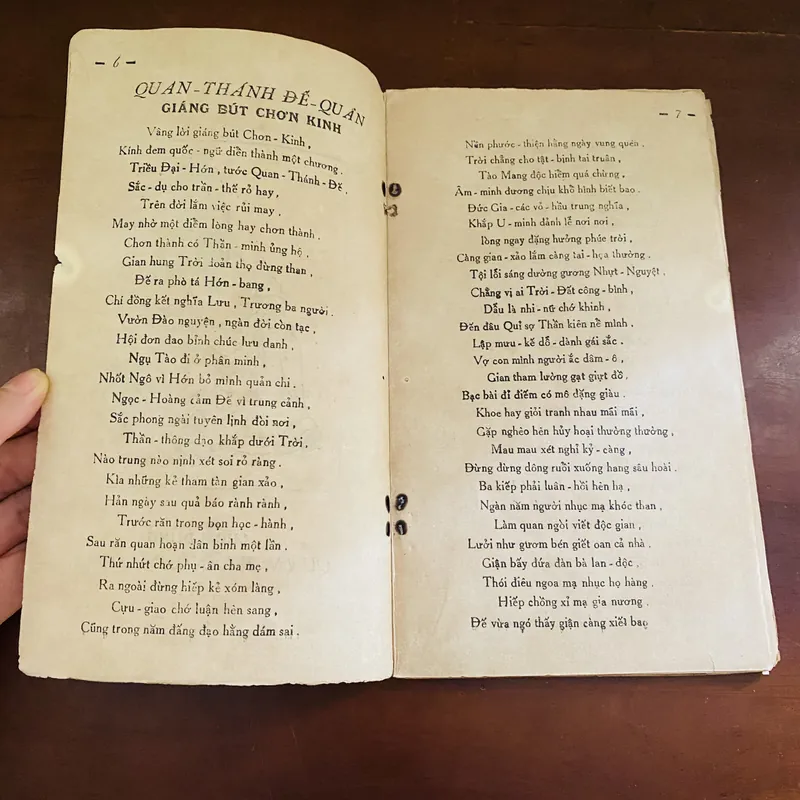 - 6 -
QUAN-THÁNH ĐẾ-QUÂN
GIÁNG BÚT CHƠN KINH
Vâng lời giáng bút Chơn-Kinh,
Kính đem quốc-ngữ diễn thành một chương.
Triều Đại-Hớn, tước Quan-Thánh-Đế,
Sắc-dụ cho trần-thế rỏ hay,
Trên đời lắm việc rủi may,
May nhờ một điểm lòng hay chơn thành,
Chơn thành có Thần-minh ủng hộ,
Gian hung Trời đoản thọ đừng than,
Đế ra phò tá Hớn-bang,
Chí đồng kết nghĩa Lưu, Trương ba người.
Vườn Đào nguyện, ngàn đời còn tạc,
Hội đơn đao bỉnh chúc lưu danh,
Ngụ Tào đi ở phân minh,
Nhốt Ngô vì Hớn bỏ mình quản chi.
Ngọc-Hoàng cảm Đế vì trung cảnh,
Sắc phong ngài tuyên lịnh đòi nơi,
Thần-thông dạo khắp dưới Trời,
Nào trung nào nịnh xét soi rỏ ràng.
Kìa những kẻ tham tàn gian xảo,
Hẳn ngày sau quả báo rành rành,
Trước răn trong bọn học-hành,
Sau răn quan hoạn dân binh một lần.
Thứ nhứt chớ phụ-ân cha mẹ,
Ra ngoài đừng hiếp kẻ xóm làng,
Cựu-giao chớ luận hèn sang,
Cũng trong năm đấng đạo hằng dám sai.
- 7 -
Nền phước-thiện hằng ngày vung quén,
Trời chẳng cho tật-bịnh tai truân,
Tào Mang độc hiểm quá chừng,
Âm-minh dương chịu khổ hình biết bao.
Đức Gia-các võ-hầu trung nghĩa,
Khắp U-minh dảnh lễ nơi nơi,
lòng ngay đặng hưởng phúc trời,
Càng gian-xảo lắm càng tai-họa thường.
Tội lỗi sáng dường gương Nhựt-Nguyệt,
Chẳng vị ai Trời-Đất công-bình,
Dẩu là nhi-nữ chớ khinh,
Đến đâu Quỉ sợ Thần kiên nề mình.
Lập mưu-kế dỗ-dành gái sắc,
Vợ con mình người ắc dâm-ô,
Gian tham lường gạt giựt đồ,
Bạc bài đĩ điếm có mô đặng giàu.
Khoe hay giỏi tranh nhau mãi mãi,
Gặp nghèo hèn hủy hoại thường thường,
Mau mau xét nghỉ kỷ-càng,
Đừng đừng dông ruổi xuống hang sâu hoài.
Ba kiếp phải luân-hồi hèn hạ,
Ngàn năm người nhục mạ khóc than,
Làm quan ngòi viết độc gian,
Lưởi như gươm bén giết oan cả nhà.
Giận bấy đứa đàn bà lan-độc,
Thói điêu ngoa mạ nhục họ hàng,
Hiếp chồng xỉ mạ gia nương,
Đế vừa ngó thấy giận càng xiết bao